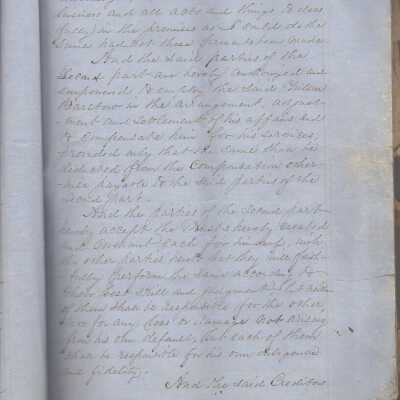 business and all acts and things to be
fully in the premises as I could do the
same had not these presents been made
And the said parties of the
Second part are hereby authorized and
empowered to employ the said
Barstow in the arrangement, adjust-
ment and settlement of his affairs and
to compensate him for his services,
provided only that the same shall be
deducted from the Compensation other-
wise payable to the said parties of the
Second part.
And the parties of the Second part
hereby accept the Trust hereby created
and Covenant each for himself, with
the other parties hereto that they will faith-
fully perform the same according to
their best skill and judgment but neither
of them shall be responsible for the other,
nor for any loss or damage not arising
from his own default, but each of them
shall be responsible for his own diligence
and fidelity.
And the said Creditors